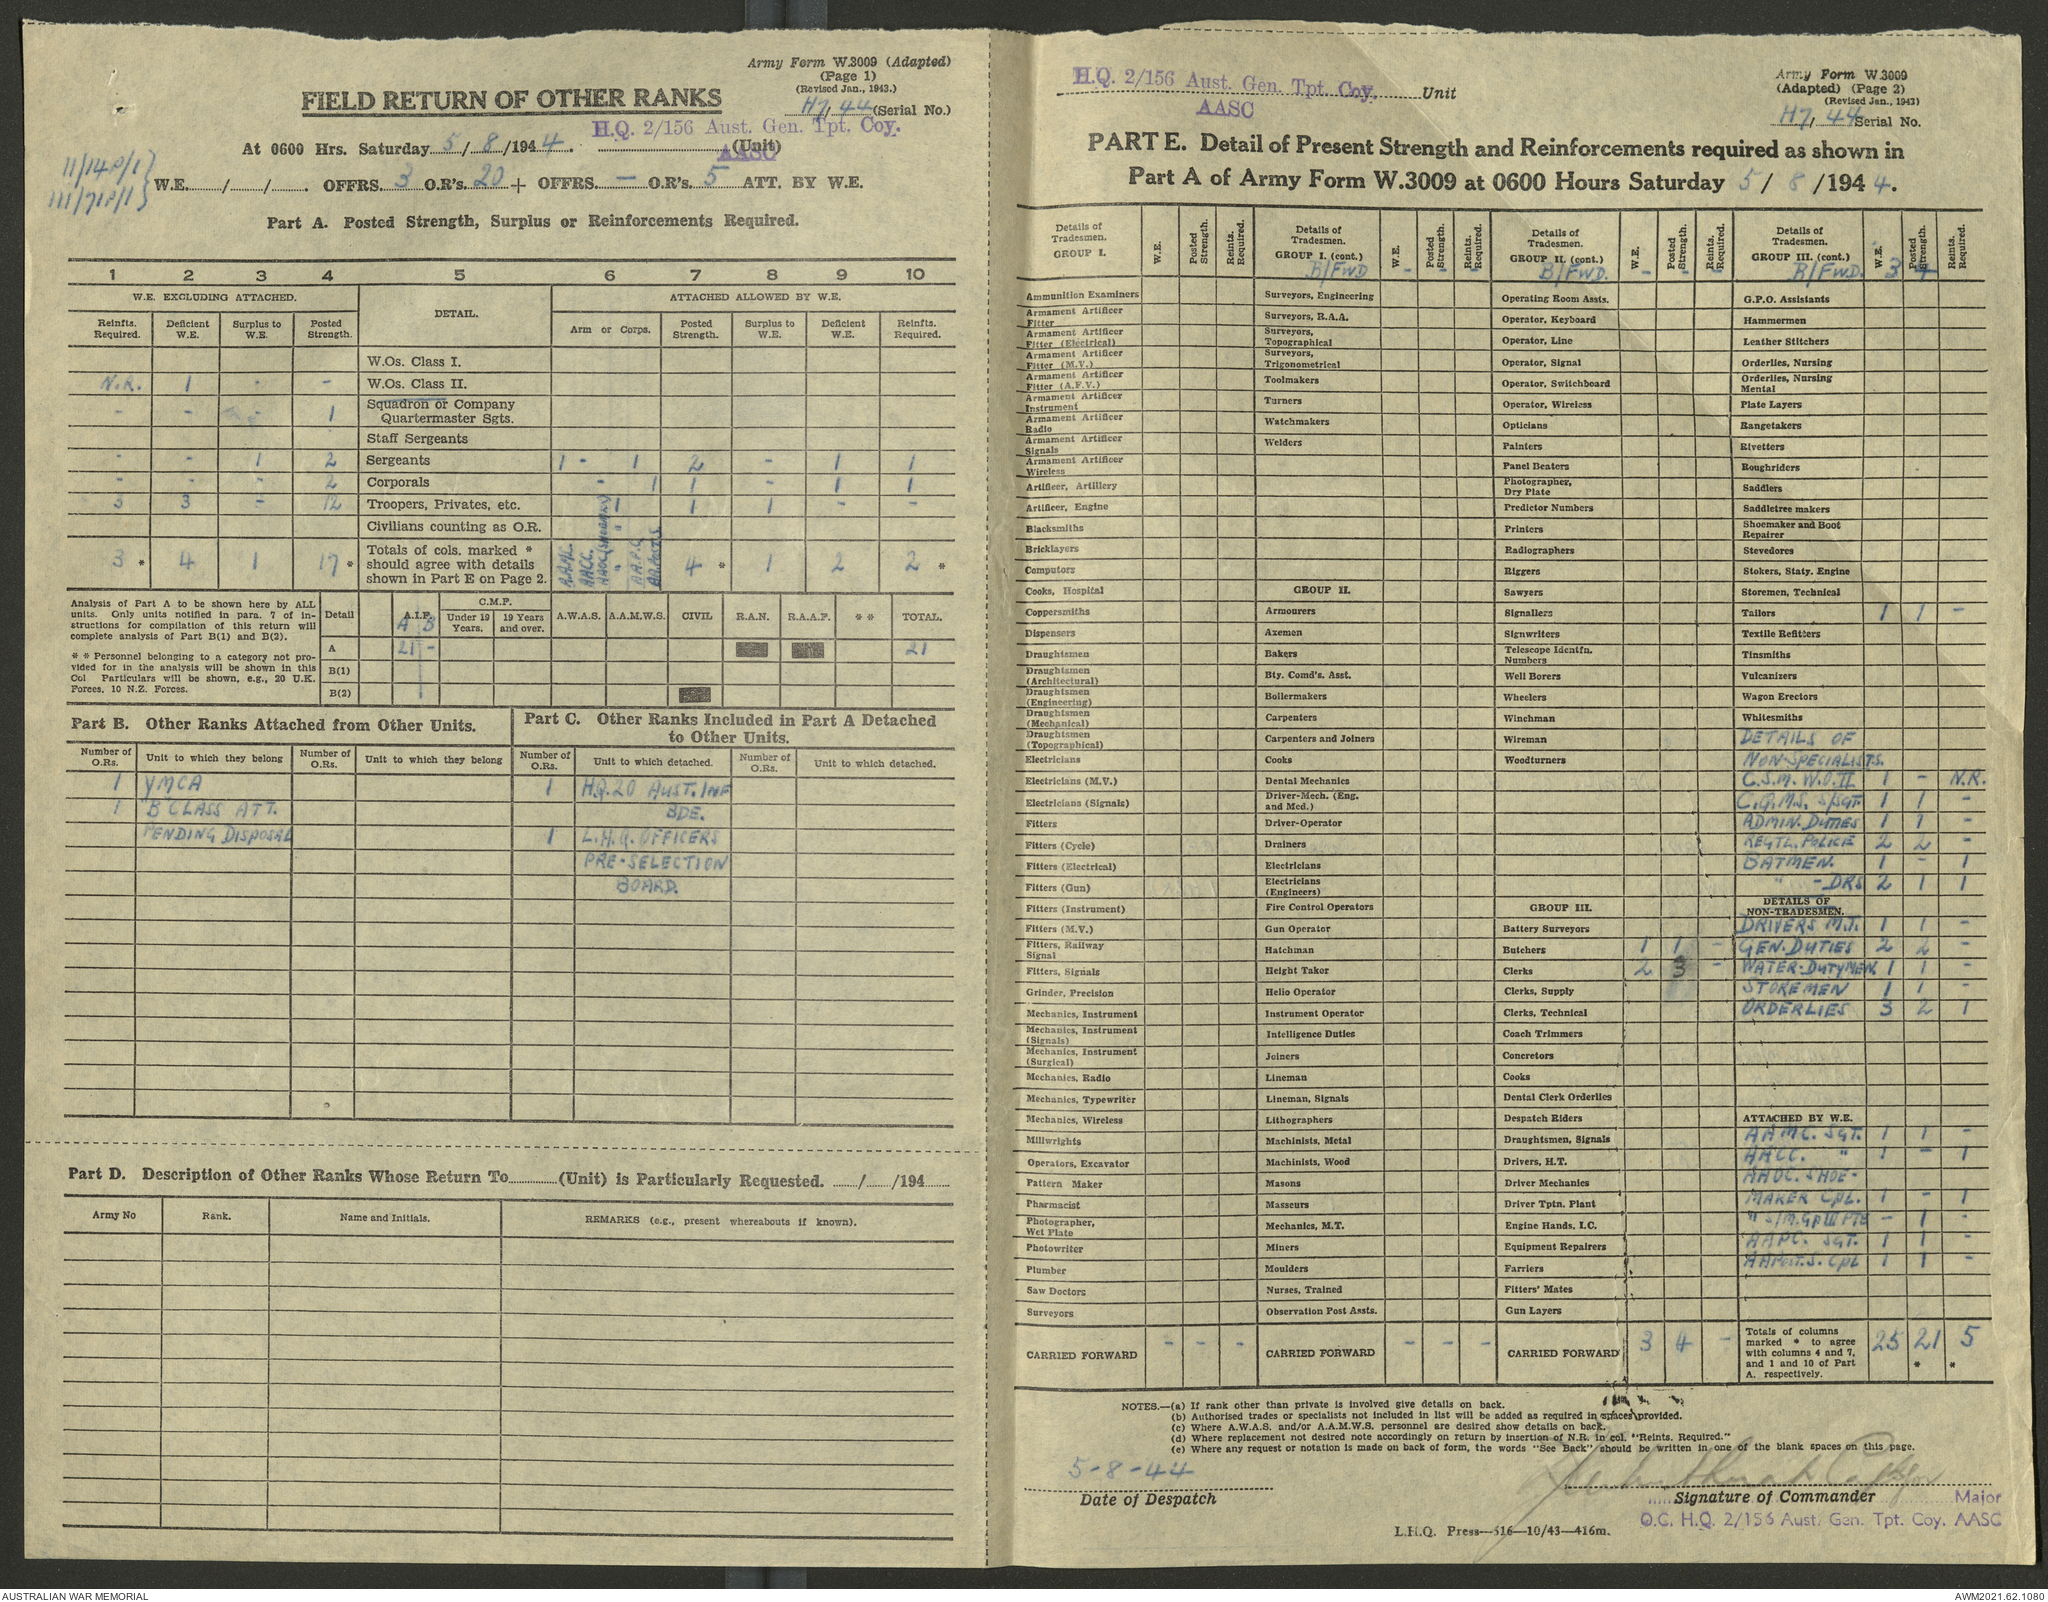 Army Form W.3009 (Adapted)
(Page 1)
(Revised Jan., 1943.)
H7/44 (Serial No.)
FIELD RETURN OF OTHER RANKS
H.Q. 2/156 Aust. Gen. Tpt. Coy.
AASC
At 0600 Hrs. Saturday 5/8/1944. (Unit)
W.E. / / . OFFRS. 3 O.R's. 20 + OFFRS. — O.R's. 5 ATT. BY W.E.
Part A. Posted Strength, Surplus or Reinforcements Required.
1 2 3 4 5 6 7 8 9 10
W.E. EXCLUDING ATTACHED. DETAIL. ATTACHED ALLOWED BY W.E.
Reinfts. Required. Deficient W.E. Surplus to W.E. Posted Strength. Arm or Corps. Posted Strength. Surplus to W.E. Deficient W.E. Reinfts. Required.
W.Os. Class I.
N.R. 1 - - W.Os. Class II.
- - - 1 Squadron or Company Quartermaster Sgts.
Staff Sergeants
- - 1 2 Sergeants 1 - 1 2 - 1 1
- - - 2 Corporals 1 1 - 1 1
3 3 - 12 Troopers, Privates, etc. 1 1 1 - -
Civilians counting as O.R.
3 * 4 1 17 * Totals of cols. marked * should agree with details shown in Part E on Page 2. 4 * 1 2 2 *
AAMC. AACC. AAOC (SHOEMKR) " A.A.P.C.
Analysis of Part A to be shown here by ALL
units. Only units notified in para. 7 of in-
structions for compilation of this return will
complete analysis of Part B(1) and B(2).
* * Personnel belonging to a category not pro-
vided for in the analysis will be shown in this
Col Particulars will be shown, e.g., 20 U.K.
Forces. 10 N.Z. Forces.
Detail A.I.F. A B C.M.F. Under 19 Years. 19 Years and over. A.W.A.S. A.A.M.W.S. CIVIL R.A.N. R.A.A.F. * * TOTAL.
A 21 - 21
B(1)
B(2)
Part B. Other Ranks Attached from Other Units.
Number of O.Rs. Unit to which they belong Number of O.Rs. Unit to which they belong
1 YMCA
1 'B' CLASS ATT.
PENDING DISPOSAL
Part C. Other Ranks Included in Part A Detached
to Other Units.
Number of O.Rs. Unit to which detached. Number of O.Rs. Unit to which detached.
1 H.Q. 20 AUST. INF
BDE.
1 L.H.Q. OFFICERS
PRE-SELECTION
BOARD.
Part D. Description of Other Ranks Whose Return To (Unit) is Particularly Requested. / /194
Army No Rank. Name and Initials. REMARKS (e.g., present whereabouts if known).
H.Q. 2/156 Aust. Gen. Tpt. Coy. Unit
AASC
Army Form W.3009
(Adapted) (Page 2)
(Revised Jan., 1943)
H7/44 Serial No.
PART E. Detail of Present Strength and Reinforcements required as shown in
Part A of Army Form W.3009 at 0600 Hours Saturday 5/8/1944.
Details of Tradesmen. GROUP I. W.E. Posted Strength. Reints. Required.
Ammunition Examiners
Armament Artificer Fitter
Armament Artificer Fitter (Electrical)
Armament Artificer Fitter (M.V.)
Armament Artificer Fitter (A.F.V.)
Armament Artificer Instrument
Armament Artificer Radio
Armament Artificer Signals
Armament Artificer Wireless
Artificer, Artillery
Artificer, Engine
Blacksmiths
Bricklayers
Computors
Cooks, Hospital
Coppersmiths
Dispensers
Draughtsmen
Draughtsmen (Architectural)
Draughtsmen (Engineering)
Draughtsmen (Mechanical)
Draughtsmen (Topographical)
Electricians
Electricians (M.V.)
Electricians (Signals)
Fitters
Fitters (Cycle)
Fitters (Electrical)
Fitters (Gun)
Fitters (Instrument)
Fitters (M.V.)
Fitters, Railway Signal
Fitters, Signals
Grinder, Precision
Mechanics, Instrument
Mechanics, Instrument (Signals)
Mechanics, Instrument (Surgical)
Mechanics, Radio
Mechanics, Typewriter
Mechanics, Wireless
Millwrights
Operators, Excavator
Pattern Maker
Pharmacist
Photographer, Wet Plate
Photowriter
Plumber
Saw Doctors
Surveyors
CARRIED FORWARD - - -
Details of Tradesmen. GROUP I. (cont.) B/FWD - - - W.E. Posted Strength. Reints. Required.
Surveyors, Engineering
Surveyors, R.A.A.
Surveyors, Topographical
Surveyors, Trigonometrical
Toolmakers
Turners
Watchmakers
Welders
GROUP II.
Armourers
Axemen
Bakers
Bty. Comd's. Asst.
Boilermakers
Carpenters
Carpenters and Joiners
Cooks
Dental Mechanics
Driver-Mech. (Eng. and Med.)
Driver-Operator
Drainers
Electricians
Electricians (Engineers)
Fire Control Operators
Gun Operator
Hatchman
Height Taker
Helio Operator
Instrument Operator
Intelligence Duties
Joiners
Lineman
Lineman, Signals
Lithographers
Machinists, Metal
Machinists, Wood
Masons
Masseurs
Mechanics, M.T.
Miners
Moulders
Nurses, Trained
Observation Post Assts.
CARRIED FORWARD - - -
Details of Tradesmen. GROUP II. (cont.) B/FWD. - - - W.E. Posted Strength. Reints. Required.
Operating Room Assts.
Operator, Keyboard
Operator, Line
Operator, Signal
Operator, Switchboard
Operator, Wireless
Opticians
Painters
Panel Beaters
Photographer, Dry Plate
Predictor Numbers
Printers
Radiographers
Riggers
Sawyers
Signallers
Signwriters
Telescope Identfn. Numbers
Well Borers
Wheelers
Winchman
Wireman
Woodturners
GROUP III.
Battery Surveyors
Butchers 1 1 -
Clerks 2 3 -
Clerks, Supply
Clerks, Technical
Coach Trimmers
Concretors
Cooks
Dental Clerk Orderlies
Despatch Riders
Draughtsmen, Signals
Drivers, H.T.
Driver Mechanics
Driver Tptn. Plant
Engine Hands, I.C.
Equipment Repairers
Farriers
Fitters' Mates
Gun Layers
CARRIED FORWARD 3 4 -
Details of Tradesmen. GROUP III. (cont.) B/FWD. 3 4 W.E. Posted Strength. Reints. Required.
G.P.O. Assistants
Hammermen
Leather Stitchers
Orderlies, Nursing
Orderlies, Nursing Mental
Plate Layers
Rangetakers
Rivetters
Roughriders
Saddlers
Saddletree makers
Shoemaker and Boot Repairer
Stevedores
Stokers, Staty. Engine
Storemen, Technical
Tailors 1 1 -
Textile Refitters
Tinsmiths
Vulcanizers
Wagon Erectors
Whitesmiths
DETAILS OF
NON-SPECIALISTS.
C.S.M. W.O.II 1 - N.R.
C.Q.M.S. S/SGT. 1 1 -
ADMIN. DUTIES 1 1 -
REGTL. POLICE 2 2 -
BATMEN. 1 - 1
" - DRS 2 1 1
DETAILS OF NON-TRADESMEN.
DRIVERS M.T. 1 1 -
GEN. DUTIES 2 2 -
WATER-DUTYMEN. 1 1 -
STOREMEN 1 1 -
ORDERLIES 3 2 1
ATTACHED BY W.E.
AAMC. SGT. 1 1 -
AACC. " 1 - 1
AAOC. SHOE-
MAKER CPL. 1 - 1
" S/M. GP III PTE - 1 -
AAPC. SGT. 1 1 -
AAPost.S. CPL 1 1 -
Totals of columns marked * to agree with columns 4 and 7, and 1 and 10 of Part A. respectively. 25 21 * 5 *
NOTES.—(a) If rank other than private is involved give details on back.
(b) Authorised trades or specialists not included in list will be added as required in spaces provided.
(c) Where A.W.A.S. and/or A.A.M.W.S. personnel are desired show details on back.
(d) Where replacement not desired note accordingly on return by insertion of N.R. in col. "Reints. Required."
(e) Where any request or notation is made on back of form, the words "See Back" should be written in one of the blank spaces on this page.
5-8-44
Date of Despatch
Signature of Commander Major
O.C. H.Q. 2/156 Aust. Gen. Tpt. Coy. AASC
L.H.Q. Press—516—10/43—416m.
AUSTRALIAN WAR MEMORIAL
AWM2021.62.1080